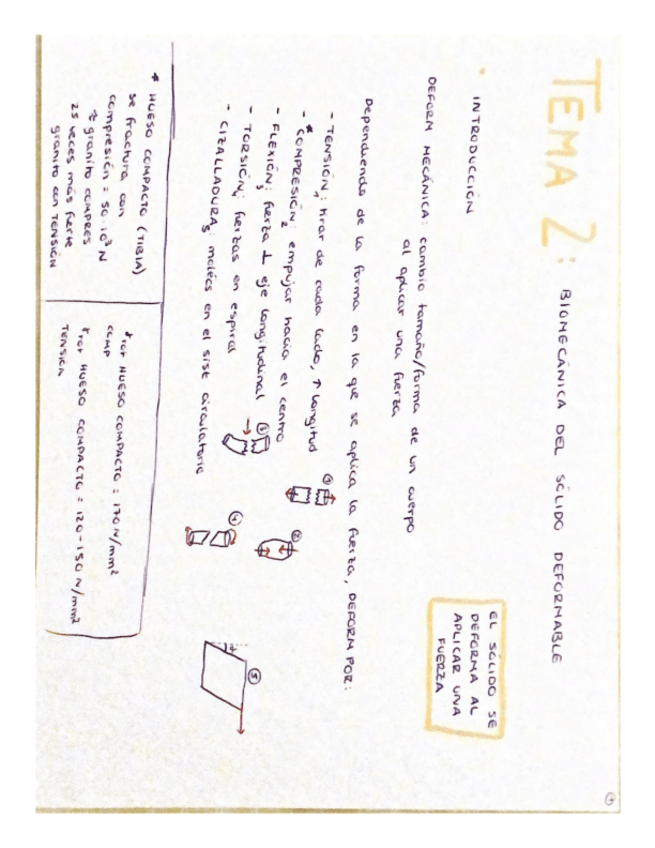 TEMA 2: BIOMECÁNICA DEL SÓLIDO DEFORMABLE
EL SÓLIDO SE
DEFORMA AL
APLICAR UNA
FUERZA
• INTRODUCCIÓN
DEFORM MECÁNICA: cambio tamaño/forma de un cuerpo
al aplicar una fuerza
Dependiendo de la forma en la que se aplica la fuerza, DEFORM POR:
- TENSIÓN₁: tirar de cada lado, ↑ longitud
- *COMPRESIÓN₂: empujar hacia el centro
- FLEXIÓN₃: fuerza ⊥ eje longitudinal
- TORSIÓN₄: fuerzas en espiral
- CIZALLADURA₅: molécs en el sist circulatorio
①
②
③
④
⑤
* HUESO COMPACTO (TIBIA)
se fractura con
compresión = 50·10³ N
granito COMPRES
25 veces más fuerte
granito con TENSIÓN
HUESO COMPACTO = 170 N/mm²
COMP
HUESO COMPACTO = 120-150 N/mm²
TENSIÓN